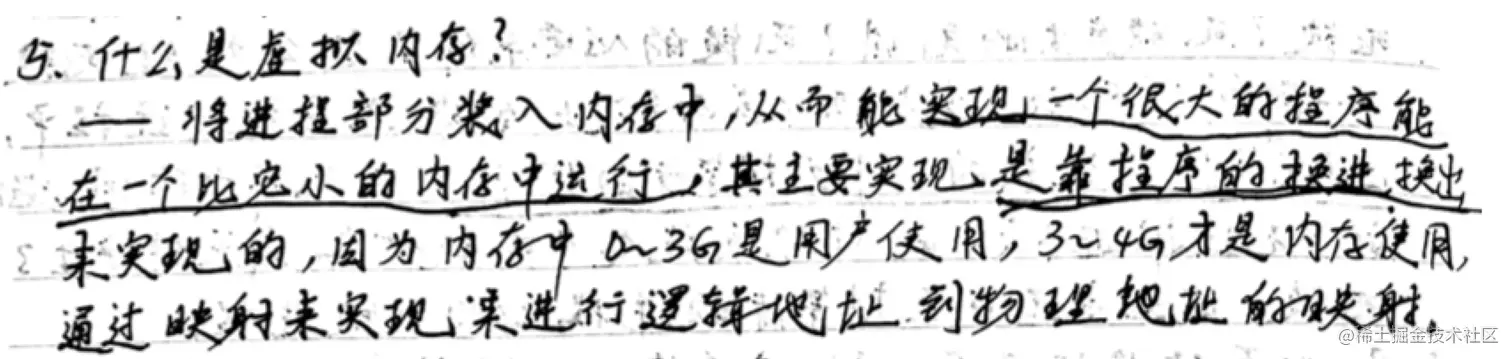 5. 什么是虚拟内存?
—— 将进程部分装入内存中,从而能实现一个很大的程序能
在一个比它小的内存中运行,其主要实现是靠程序的换进换出
来实现的,因为内存中0~3G是用户使用,3~4G才是内存使用,
通过映射来实现来进行逻辑地址到物理地址的映射.
@稀土掘金技术社区